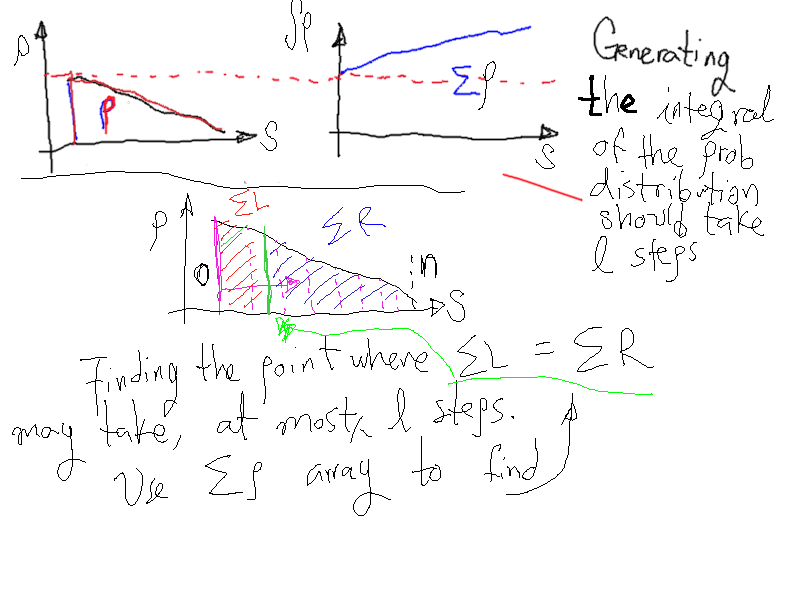 ρ
∫ρ
Generating
the integral
of the prob
distribution
should take
l steps
Σρ
ρ
S
S
ΣL
ΣR
ρ
0
n
S
Finding the point where ΣL = ΣR
may take, at most, l steps.
Use Σρ array to find